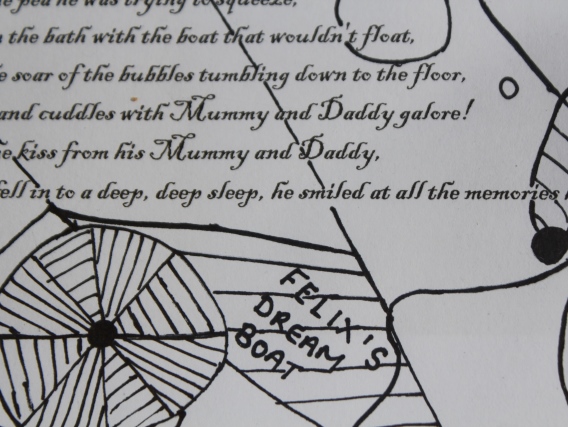 pea he was trying to squeeze,
the bath with the boat that wouldn't float,
soar of the bubbles tumbling down to the floor,
and cuddles with Mummy and Daddy galore!
kiss from his Mummy and Daddy,
fell in to a deep, deep sleep, he smiled at all the memories
FELIX'S
DREAM
BOAT